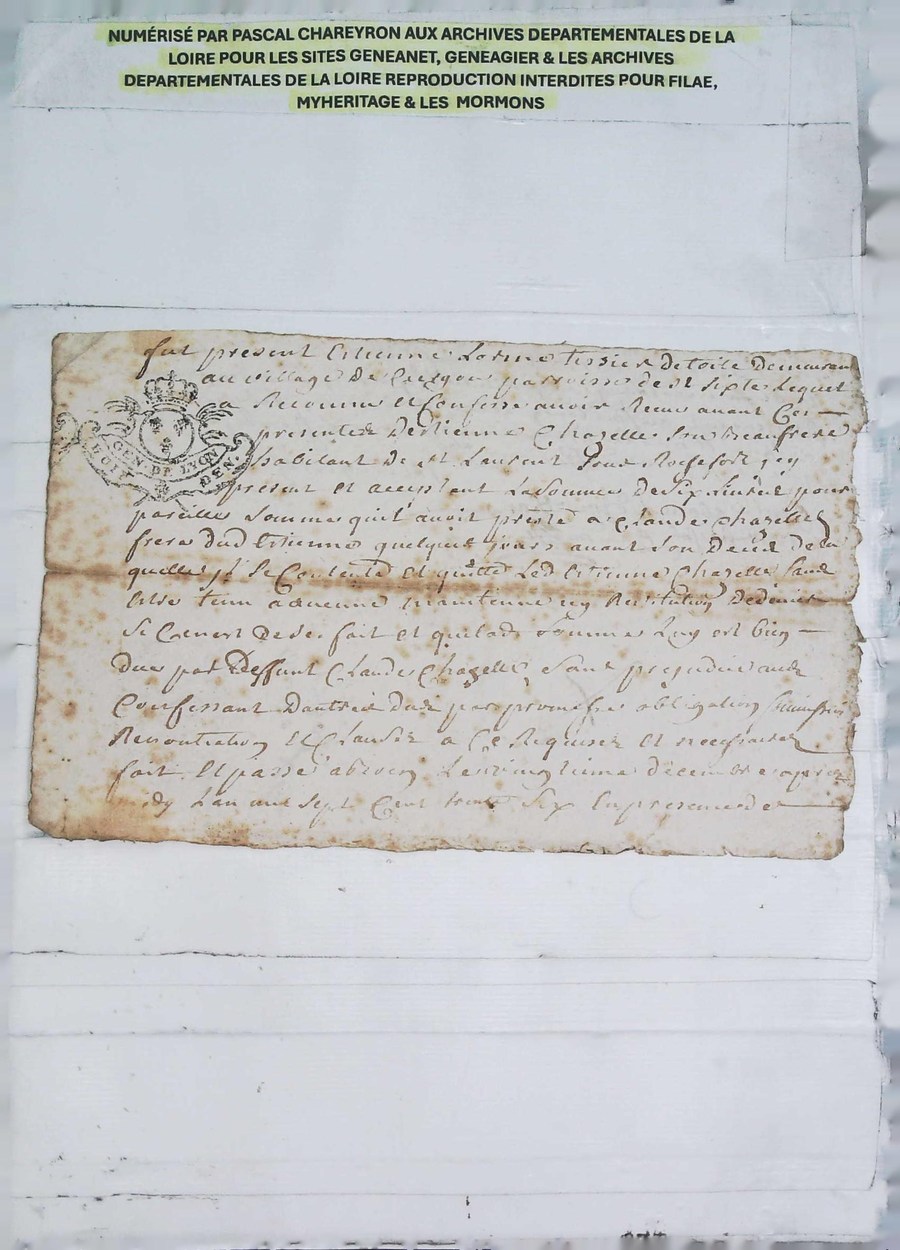 NUMÉRISÉ PAR PASCAL CHAREYRON AUX ARCHIVES DEPARTEMENTALES DE LA
LOIRE POUR LES SITES GENEANET, GENEAGIER & LES ARCHIVES
DEPARTEMENTALES DE LA LOIRE REPRODUCTION INTERDITES POUR FILAE,
MYHERITAGE & LES MORMONS
fut present Estienne Lorme tissier de toile demeurant
au village De parroisse de st sixte lequel
a Reconnu et Confessé avoir Receu avant Ces
presentes Destienne Chazelle son beaufrere
habitant de st Laurent Sous Rochefort icy
present et acceptant La Somme de Six Livres pour
GEN. DE LYON
DEN.
pareille somme quil avoit presté a Claude Chazelle
frere dud Estienne quelques jours avant son Decez de la
quelle il se Contente et quitte led Estienne Chazelle sans
estre tenu a aucune maintenue ny Restitution De deniers
Si Ce nest de Se. fait et que lad somme Luy est bien
Due par Deffunt Claude Chazelle sans prejudice aud
Confessant Dautres par promesse obligation
Renontiation et Clauses a Ce Requises et necessaires
fait et passé a Le vingtieme décembre apres
midy Lan mil Sept Cent trente Six En presence de